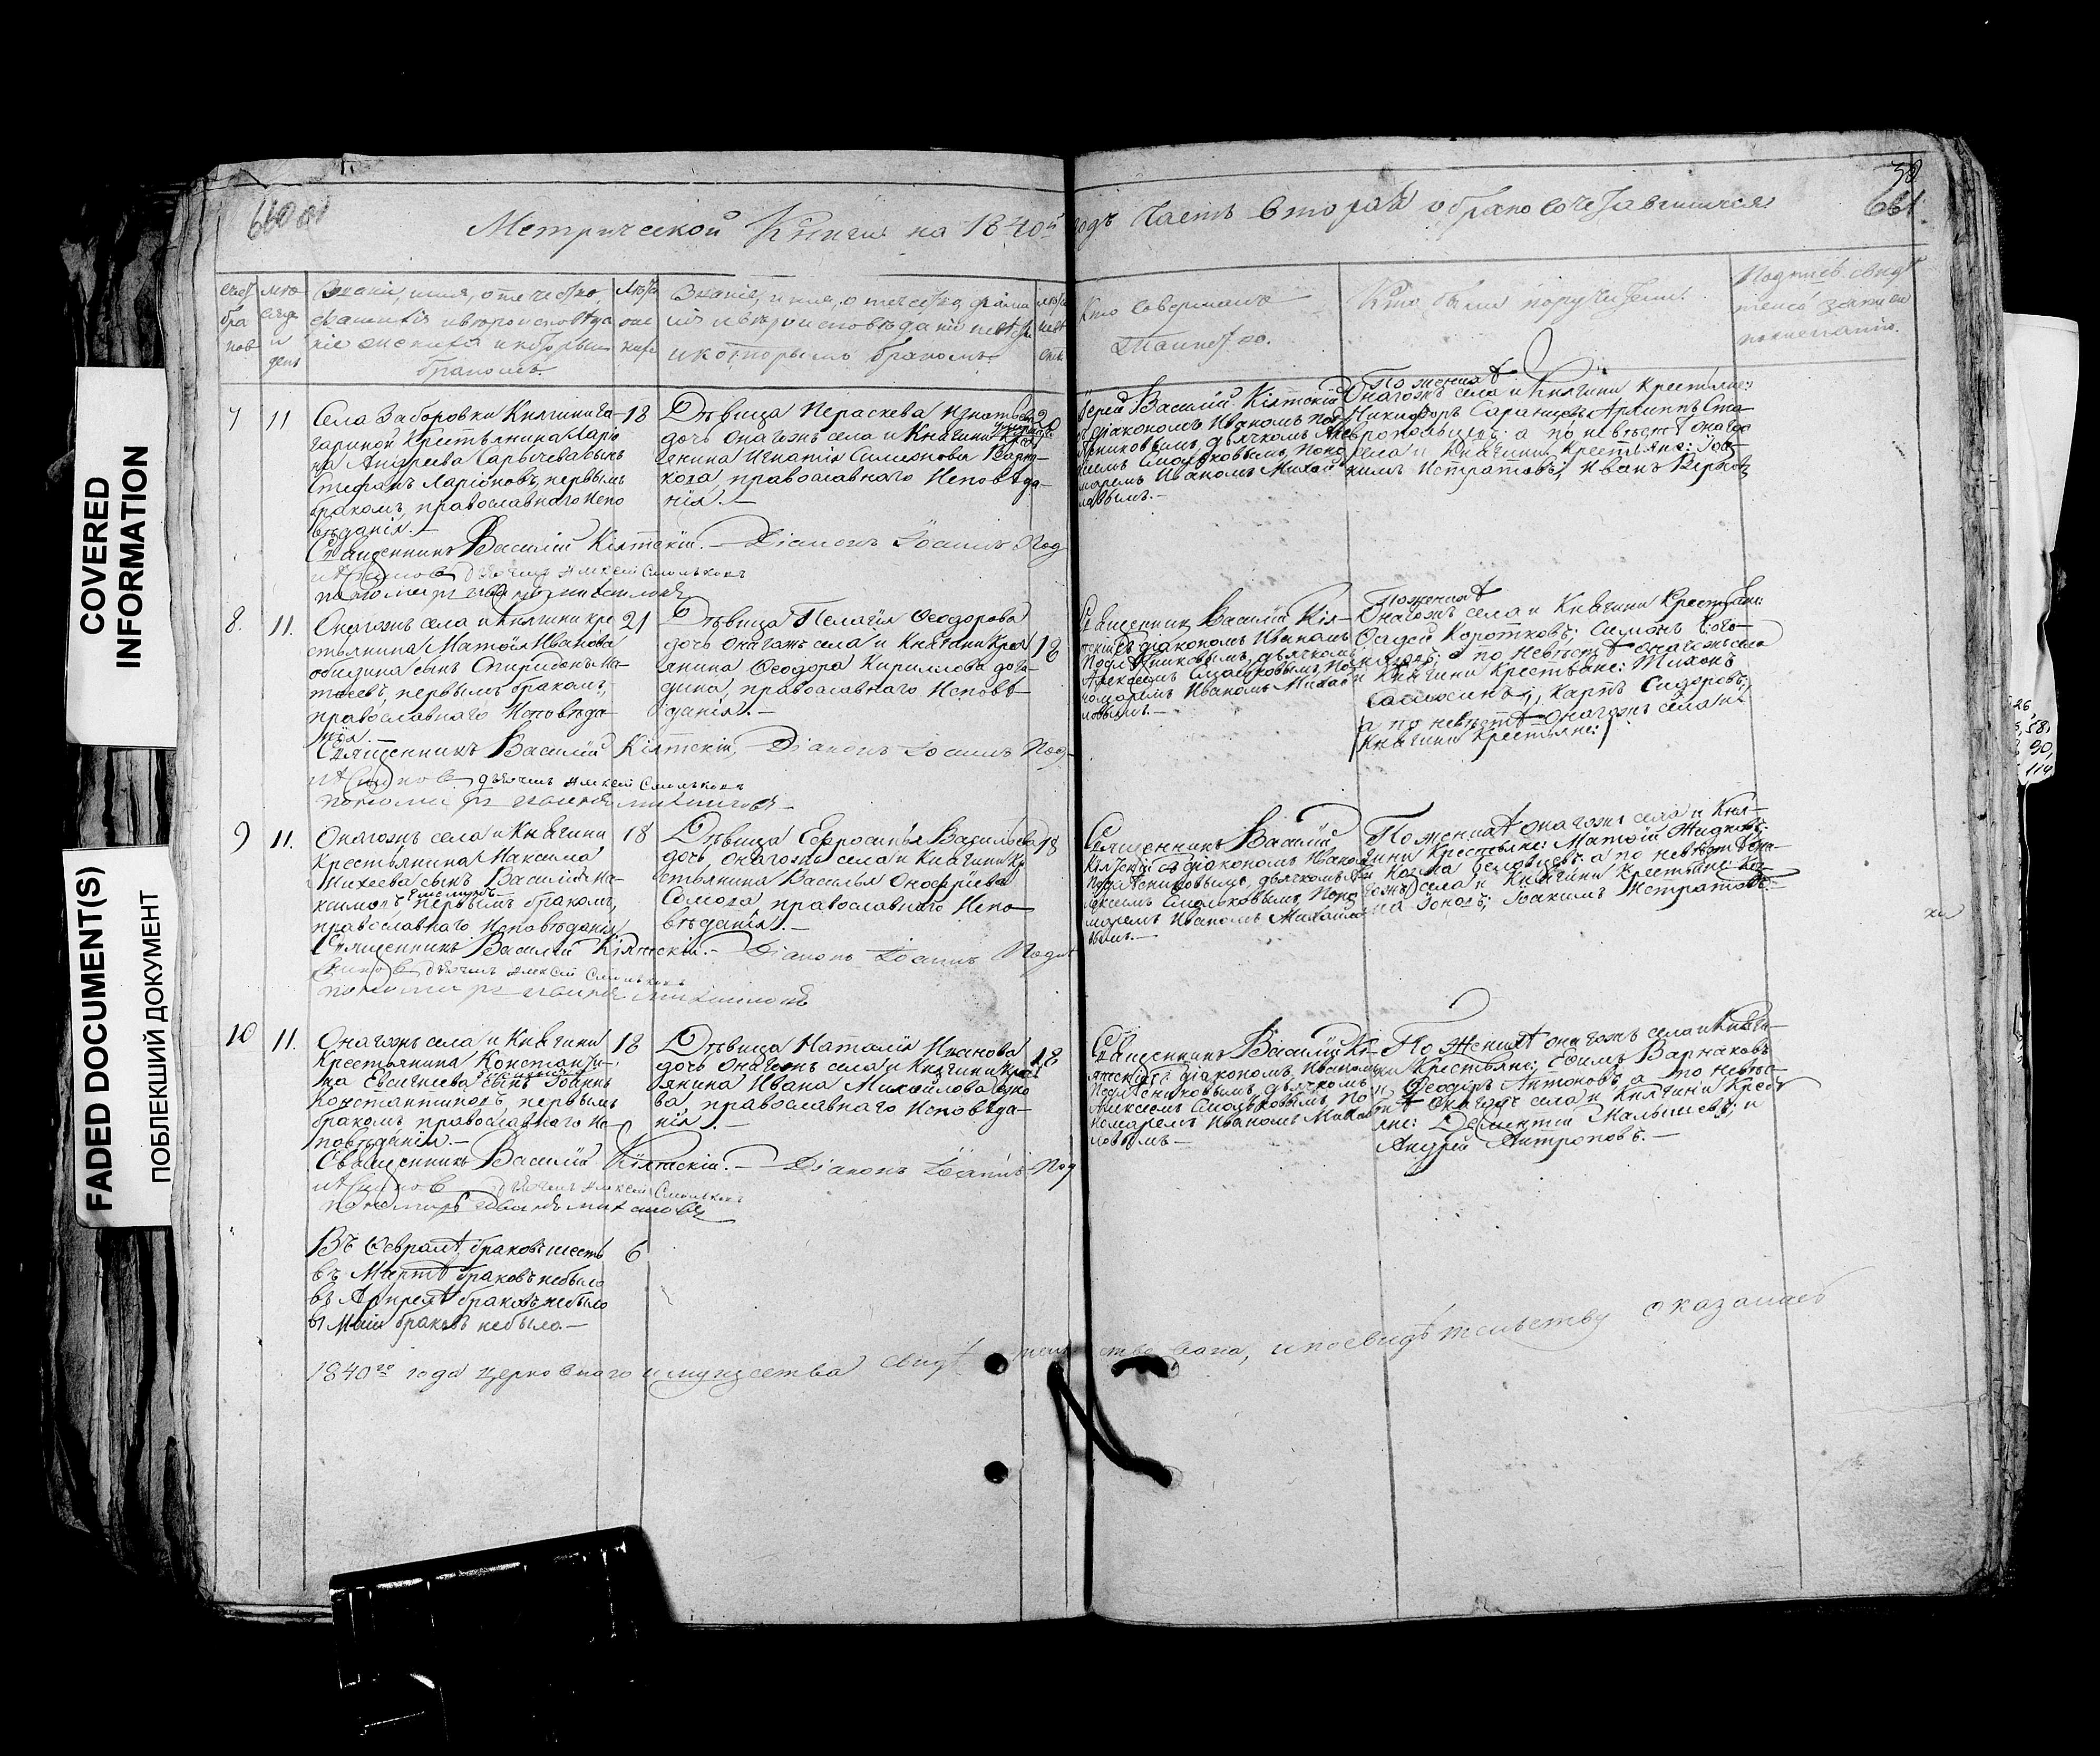 COVERED
INFORMATION
FADED DOCUMENT(S)
ПОБЛЕКШИЙ ДОКУМЕНТ
660 об
58
661.
Метрической Книги на 1840й годъ Часть вторая о бракосочетавшихся
счет бра ков
мѣсяцъ и день
Званіе, имя, отечество,
фамилія и вѣроисповѣда
ніе жениха и которымъ
бракомъ.
Лѣта же них
Званіе, имя, отечество, фами
лія и вѣроисповѣданіе невѣсты
и которымъ бракомъ
лѣта невѣ сты
Кто совершалъ
таинство.
Кто были поручители.
Подпись свидѣ
телей записи
по желанію.
7
11
Села Заборовки Княгини Га-
гариной Крестьянина Ларіо
на Андреева Сарычева сынъ
Стефанъ Ларіоновъ, первымъ
бракомъ, православнаго Испо
вѣданія.-
18
Дѣвица Параскева Игнатьева
дочь онагожъ села и Княгини Крес
янина Игнатія Симеонова
православнаго Исповѣда-
нія.-
20
Іерей Василій Кіятскій
съ діакономъ Иваномъ Под
лѣсниковымъ, дьячкомъ Але
ксѣемъ Смольковымъ, поно
маремъ Иваномъ Михай
ловымъ.-
По женихѣ
Онагожъ села и Княгини Крестьяне:
Никифоръ Саранцевъ, Архиппъ Ста-
вропольцевъ; а по невѣстѣ онаго
села и Княгини Крестьяне: Іоа-
кимъ Истратовъ; Иванъ
Священникъ Василій Кіятскій.- Діаконъ Іоаннъ Под
лѣсниковъ дьячекъ Алексѣй Смольковъ
пономарь Иванъ Михайловъ
8.
11.
Онагожъ села и Княгини Кре
стьянина Матѳія Иванова
сынъ Спиридонъ Ма-
тѳеевъ, первымъ бракомъ,
православнаго Исповѣда-
нія.-
21
Дѣвица Пелагія Ѳеодорова
дочь онагожъ села и Княгини Крес
янина Ѳеодора Кириллова
православнаго Исповѣ-
данія.-
18
Священникъ Василій Кія-
тскій съ діакономъ Иваномъ
Подлѣсниковымъ, дьячкомъ
Алексѣемъ Смольковымъ, по
номаремъ Иваномъ Михай
ловымъ.-
По женихѣ
Онагожъ села и Княгини Крестьяне:
Коротковъ; Симонъ
а по невѣстѣ онагожъ села
и Княгини Крестьяне: Тихонъ
Карпъ Сидоровъ;
а по невѣстѣ онагожъ села и
Княгини Крестьяне:
Священникъ Василій Кіятскій, Діаконъ Іоаннъ Под-
лѣсниковъ дьячекъ Алексѣй Смольковъ
пономарь Иванъ Михайловъ
9
11.
Онагожъ села и Княгини
Крестьянина Максима
Михеева сынъ Василій Ма-
ксимовъ, первымъ бракомъ,
православнаго Исповѣданія
18
Дѣвица Ефросинья Васильева
дочь, онагожъ села и Княгини Кре
стьянина Василья Онофріева
Сомова, православнаго Испо-
вѣданія.-
18
Священникъ Василій
Кіятскій съ діакономъ Иваномъ
Подлѣсниковымъ, дьячкомъ Але
ксѣемъ Смольковымъ, поно
маремъ Иваномъ Михайло
вымъ.-
По женихѣ онагожъ села и Кня-
гини Крестьяне: Матѳій Жидковъ
и Козма Беловцевъ а по невѣстѣ она
гожъ села и Княгини Крестьяне:
Іоакимъ Истратовъ.-
Священникъ Василій Кіятскій.- Діаконъ Іоаннъ Подлѣ
сниковъ дьячекъ Алексѣй Смольковъ
пономарь Иванъ Михайловъ
10
11.
Онагожъ села и Княгини
Крестьянина Константи-
на Евсигнеева сынъ Іоаннъ
Константиновъ, первымъ
бракомъ, православнаго Ис-
повѣданія.-
18
Дѣвица Наталія Иванова
дочь онагожъ села и Княгини Крест
янина Ивана Михайлова
православнаго Исповѣда-
нія.-
18
Священникъ Василій Кі-
ятскій съ діакономъ Иваномъ
Подлѣсниковымъ, дьячкомъ
Алексѣемъ Смольковымъ, по
номаремъ Иваномъ Михай
ловымъ-
По женихѣ онагожъ села и Княги-
ни Крестьяне: Ефимъ Варнаковъ
и Ѳеодоръ Антоновъ, а по невѣс-
тѣ онагожъ села и Княгини Кресть
яне: Дементій Малышевъ, и
Андрей Антроповъ.-
Священникъ Василій Кіятскій.- Діаконъ Іоаннъ Под
лѣсниковъ дьячекъ Алексѣй Смольковъ
пономарь Иванъ Михайловъ
Въ Февралѣ браковъ шесть 6
въ Мартѣ браковъ небыло
въ Апрелѣ браковъ небыло
в Маіи браковъ небыло.-
1840го года церковнаго имущества свидѣтельствована, и по свидѣтельству оказалась